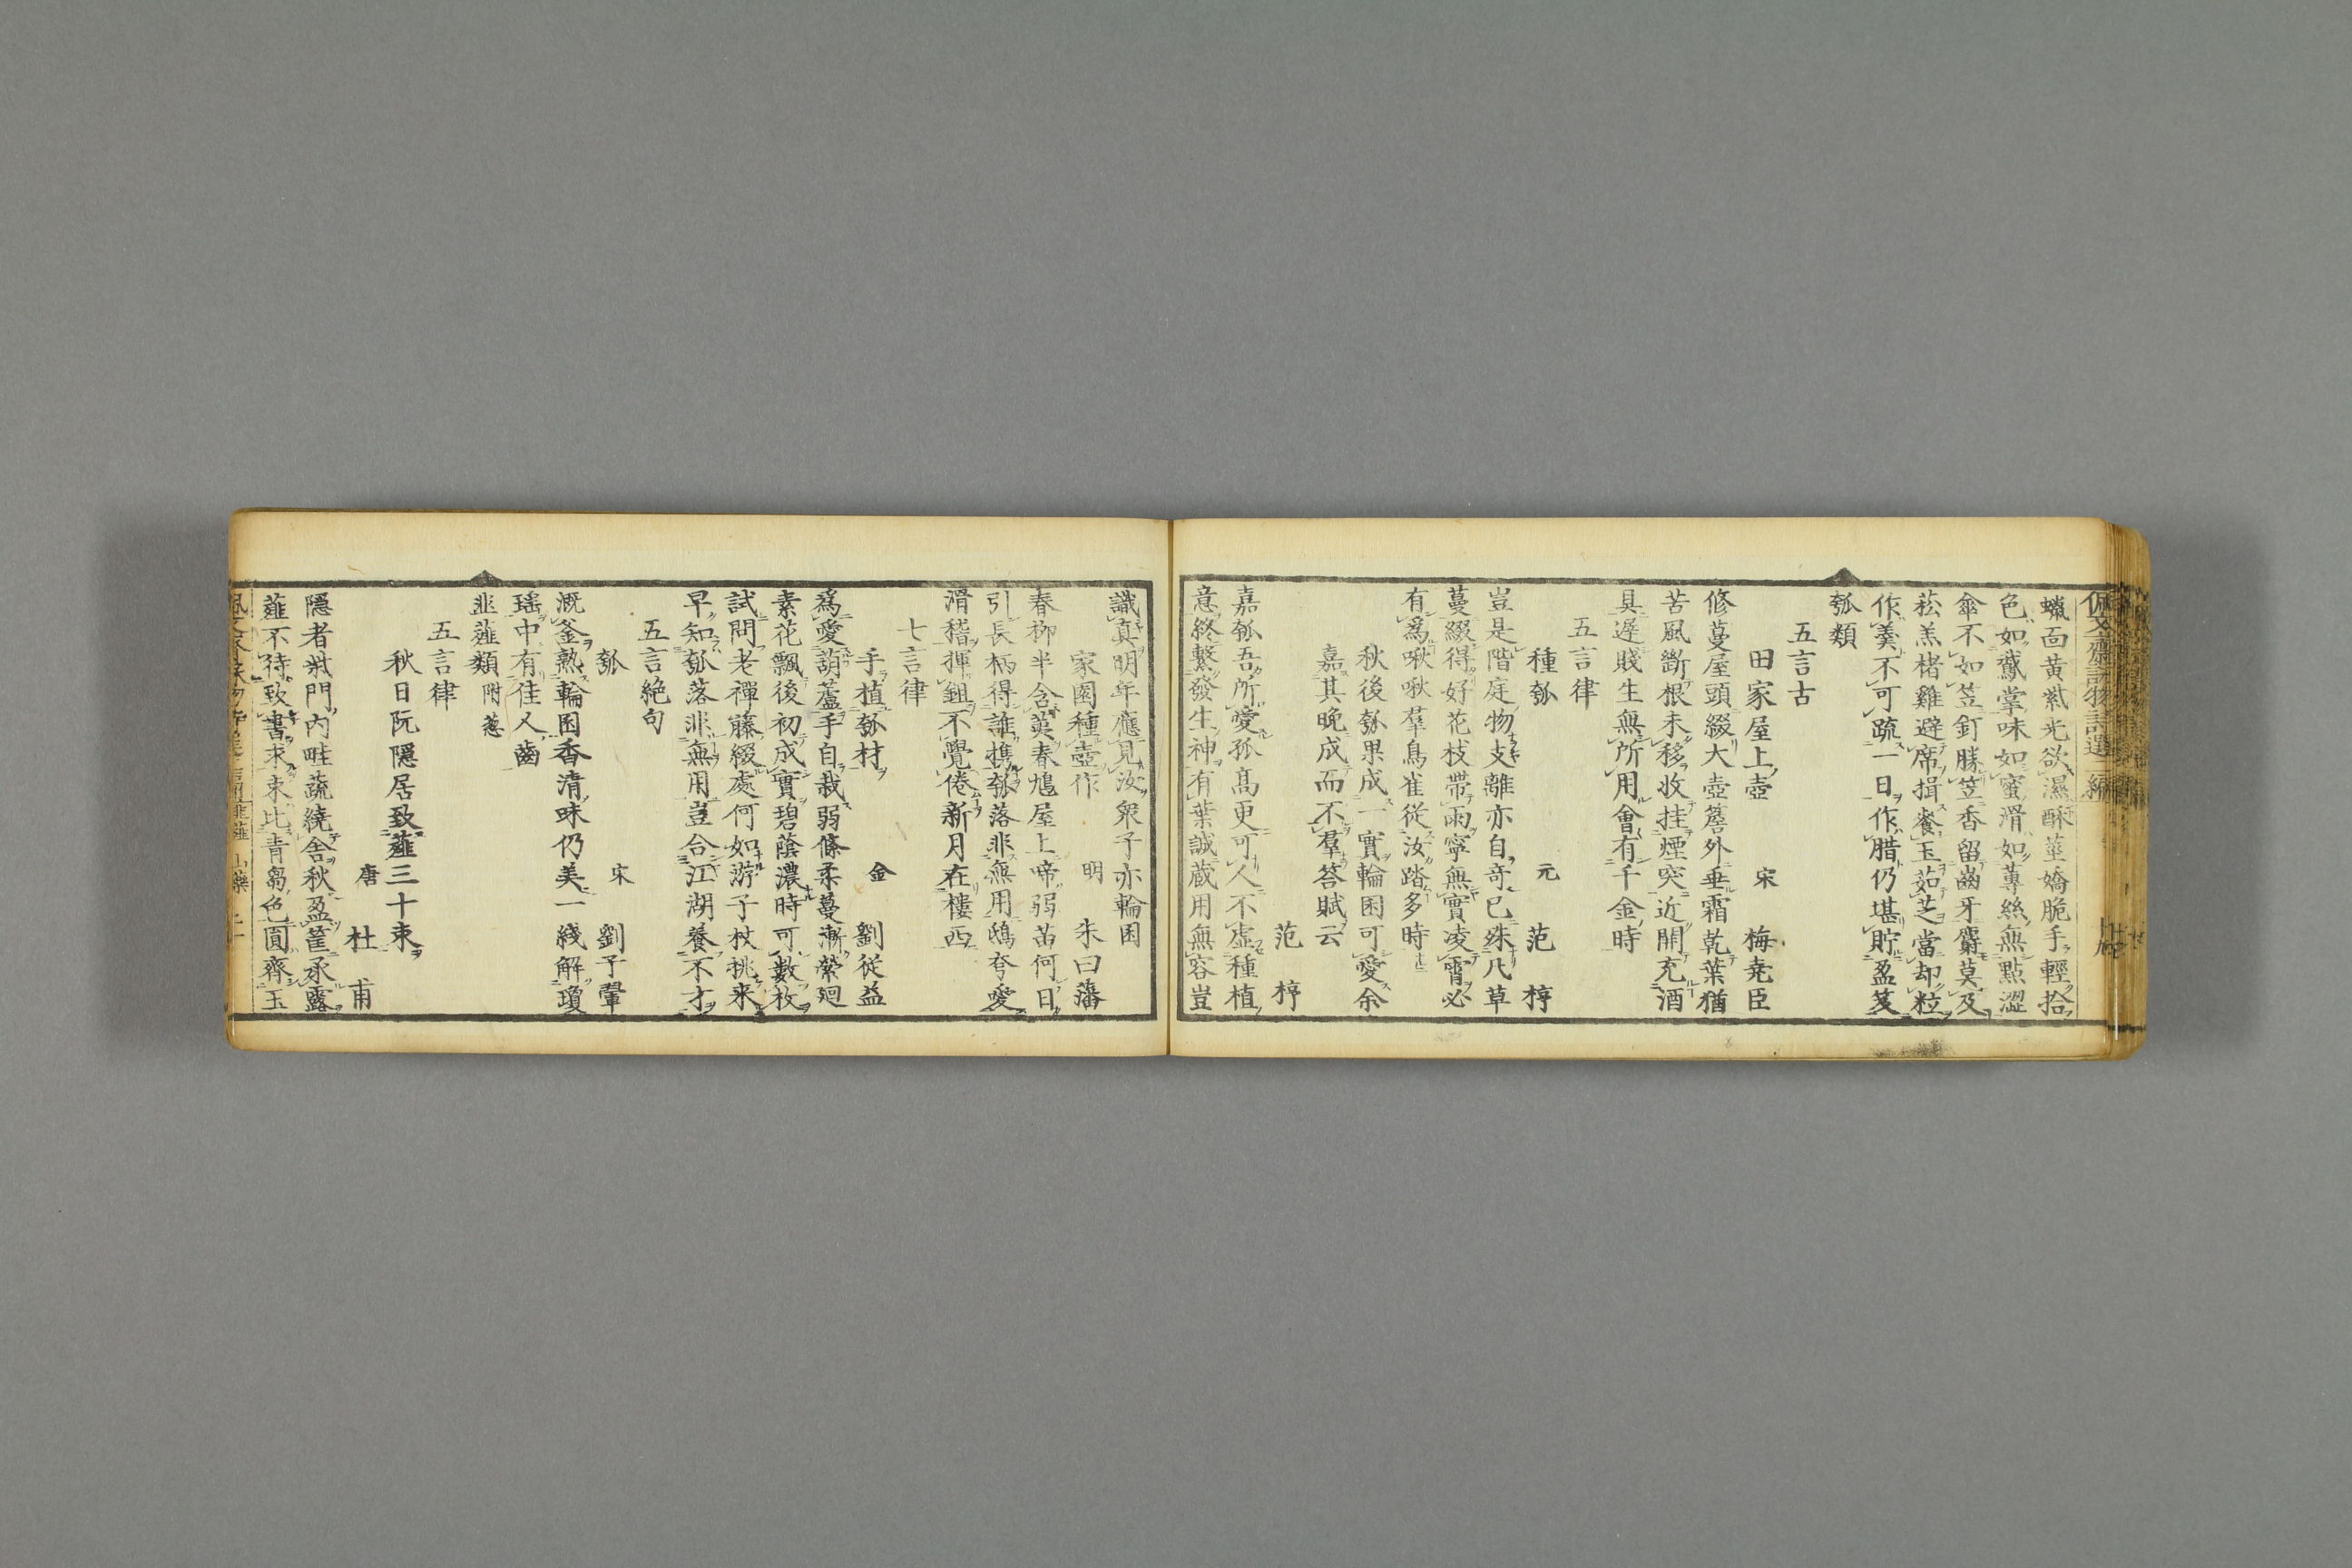 佩文齋詠物詩選二編
蠟面黃紫光欲濕酥莖嬌脆手輕拾
色如鵞掌味如蜜滑如蓴絲無點澀
傘不如笠釘勝笠香留齒牙麝莫及
菘羔楮雞避席揖餐玉茹芝當却粒
作羹不可疏一日作腊仍堪貯盈笈
瓠類
五言古
田家屋上壺 宋 梅堯臣
修蔓屋頭綴大壺簷外垂霜乾葉猶
苦風斷根未移收挂煙突近開充酒
具遲賤生無所用會有千金時
五言律
種瓠 元 范 梈
豈是階庭物支離亦自奇已殊凡草
蔓綴得好花枝帶雨寧無實凌霄必
有爲啾啾羣鳥雀從汝踏多時
秋後瓠果成一實輪囷可愛余
嘉其晚成而不羣答賦云
范 梈
嘉瓠吾所愛孤髙更可人不虛種植
意終繫發生神有葉誠蔵用無容豈
識真明年應見汝衆子亦輪囷
家園種壺作 明 朱曰藩
春柳半含荑春鳩屋上啼弱苗何日
引長柄得誰攜瓠落非無用鴟夸愛
滑稽揮鉏不覺倦新月在樓西
七言律
手植瓠材 金 劉従益
爲愛葫蘆手自栽弱條柔蔓漸縈廻
素花飄後初成實碧蔭濃時可數枚
試問老禪藤綴處何如游子杖挑来
早知瓠落非無用豈合江湖養不才
五言絶句
瓠 宋 劉子翬
溉釜熟輪囷香清味仍美一綫解瓊
瑤中有佳人齒
韭薤類 附葱
五言律
秋日阮隱居致薤三十束
唐 杜 甫
隱者柴門內畦蔬繞舍秋盈筐承露
薤不待致書求束比青芻色圓齊玉